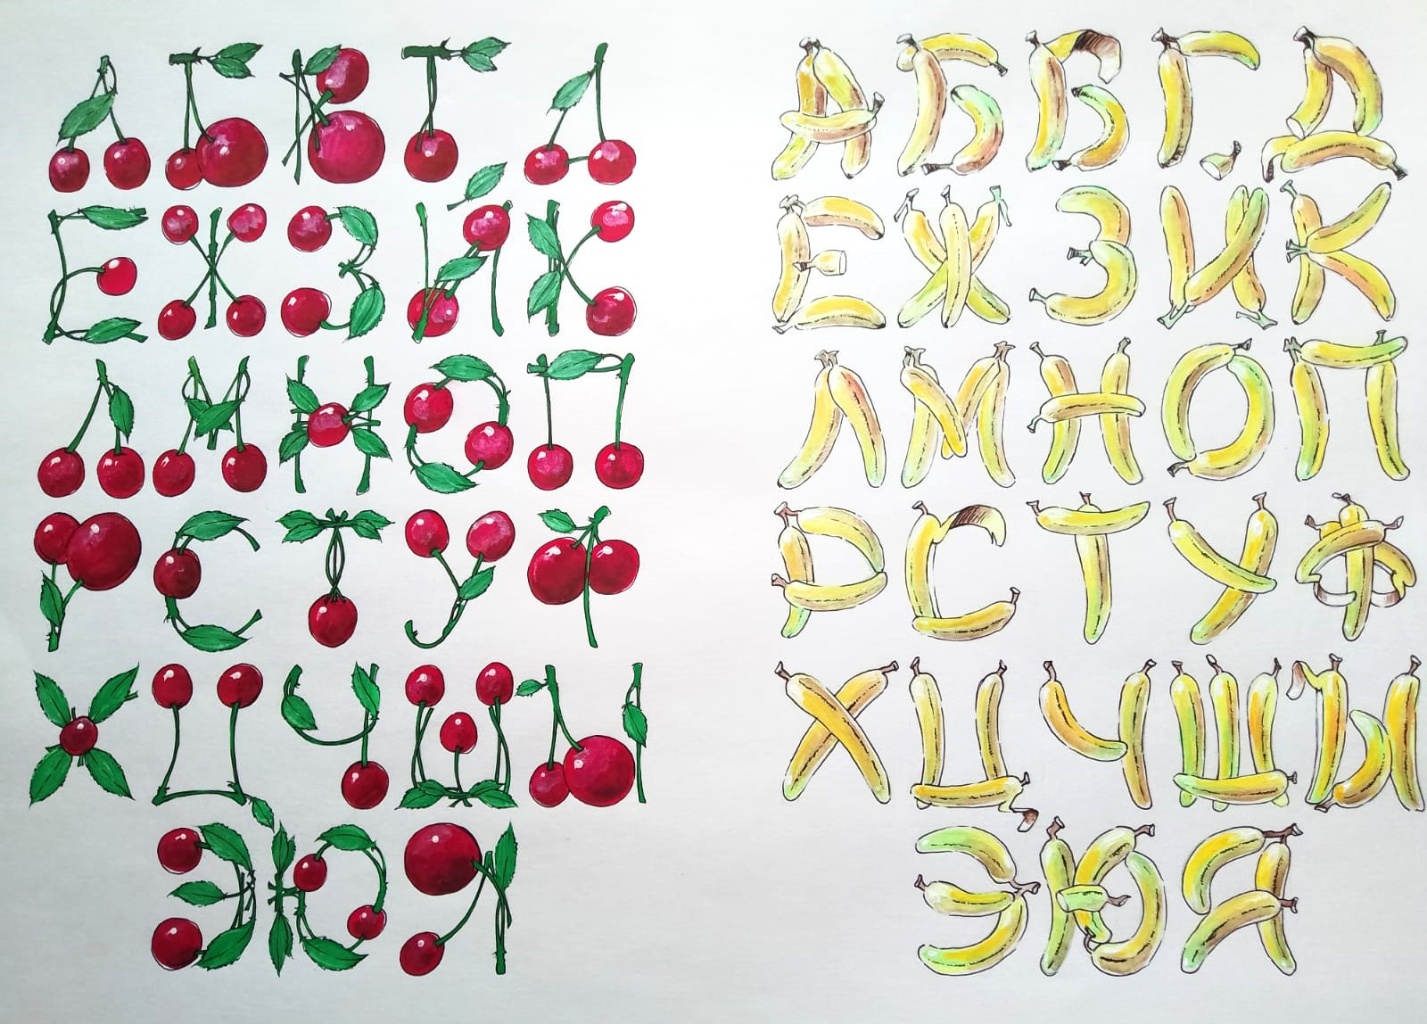 АБВГД
ЕЖЗИК
ЛМНОП
РСТУФ
ХЦЧШЫ
ЭЮЯ
АБВГД
ЕЖЗИК
ЛМНОП
РСТУФ
ХЦЧШЫ
ЭЮЯ